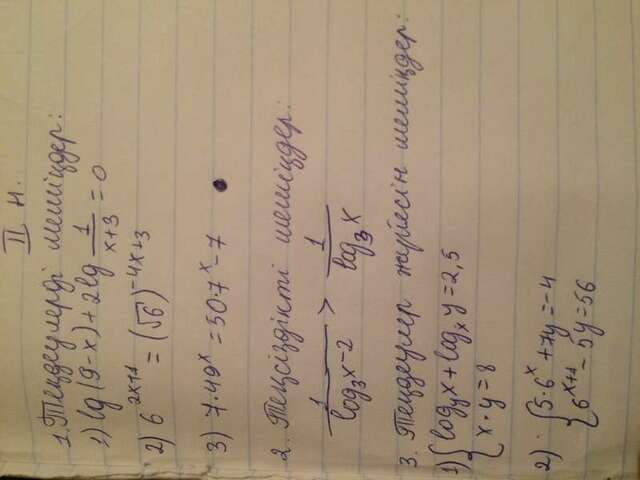 II н.
1. Теңдеулерді шешіңдер:
1) lg(9-x)+2lg 1/(x+3) = 0
2) 6^(2x+1) = (√6)^(-4x+3)
3) 7·49^x = 50·7^x - 7
2. Теңсіздікті шешіңдер:
1/(log_3 x - 2) > 1/(log_3 x)
3. Теңдеулер жүйесін шешіңдер:
1) { log_y x + log_x y = 2,5
x·y = 8
2) { 5·6^x + 7y = -4
6^(x+1) - 5y = 56